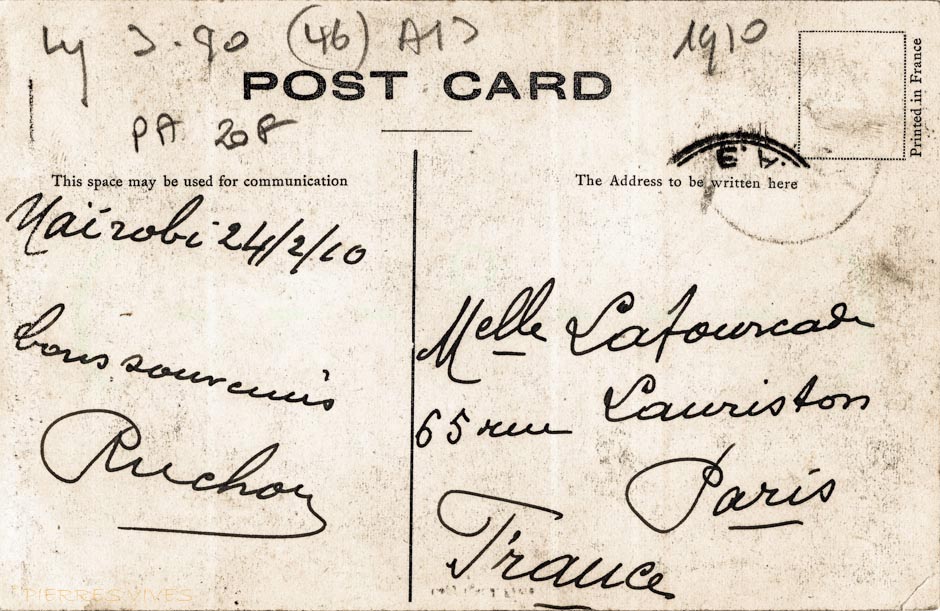 Ly 3-90 (46) A13 1910
POST CARD
Printed in France
PA 20F
E.A.
This space may be used for communication
The Address to be written here
Naïrobi 24/2/10
bons souvenirs
Ruchon
Melle Lafourcade
65 rue Lauriston
Paris
France
PIERRES VIVES